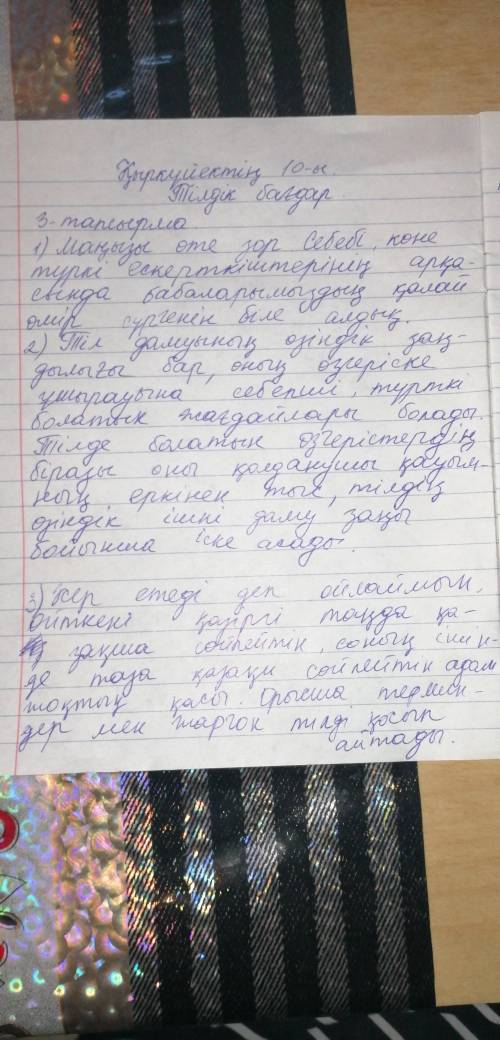 Қыркүйектің 10-ы.
Тілдік бағдар
3-тапсырма
1) Маңызы өте зор Себебі, көне
түркі ескерткіштерінің арқа-
сында бабаларымыздың қалай
өмір сүргенін біле алдық.
2) Тіл дамуының өзіндік заң-
дылығы бар, оның өзгеріске
ұшырауына себепші, түрткі
болатын жағдайлары болады.
Тілде болатын өзгерістердің
біразы оны қолданушы қауым-
ның еркінен тыс, тілдің
өзіндік ішкі даму заңы
бойынша іске асады.
3) Әсер етеді деп ойлаймын,
өйткені қазіргі таңда қа-
зақша сөйлейтін, соның ішін-
де таза қазақы сөйлейтін адам
жоқтың қасы. Орысша термин-
дер мен жаргон тілді қосып
айтады.